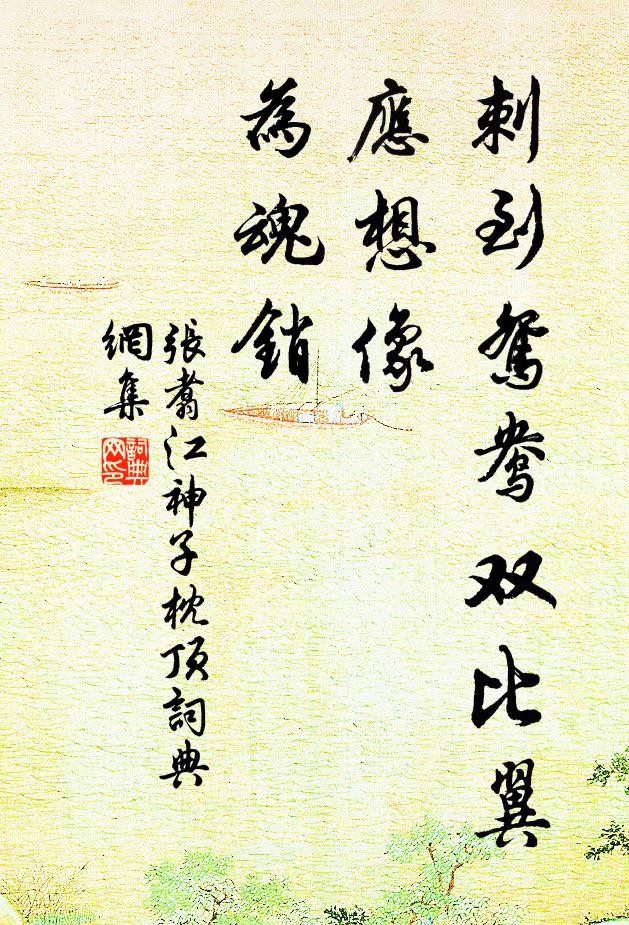 刺到鸳鸯双比翼
應想像
為魂銷
張翥江神子枕頂詞典
網集
詞典
网印